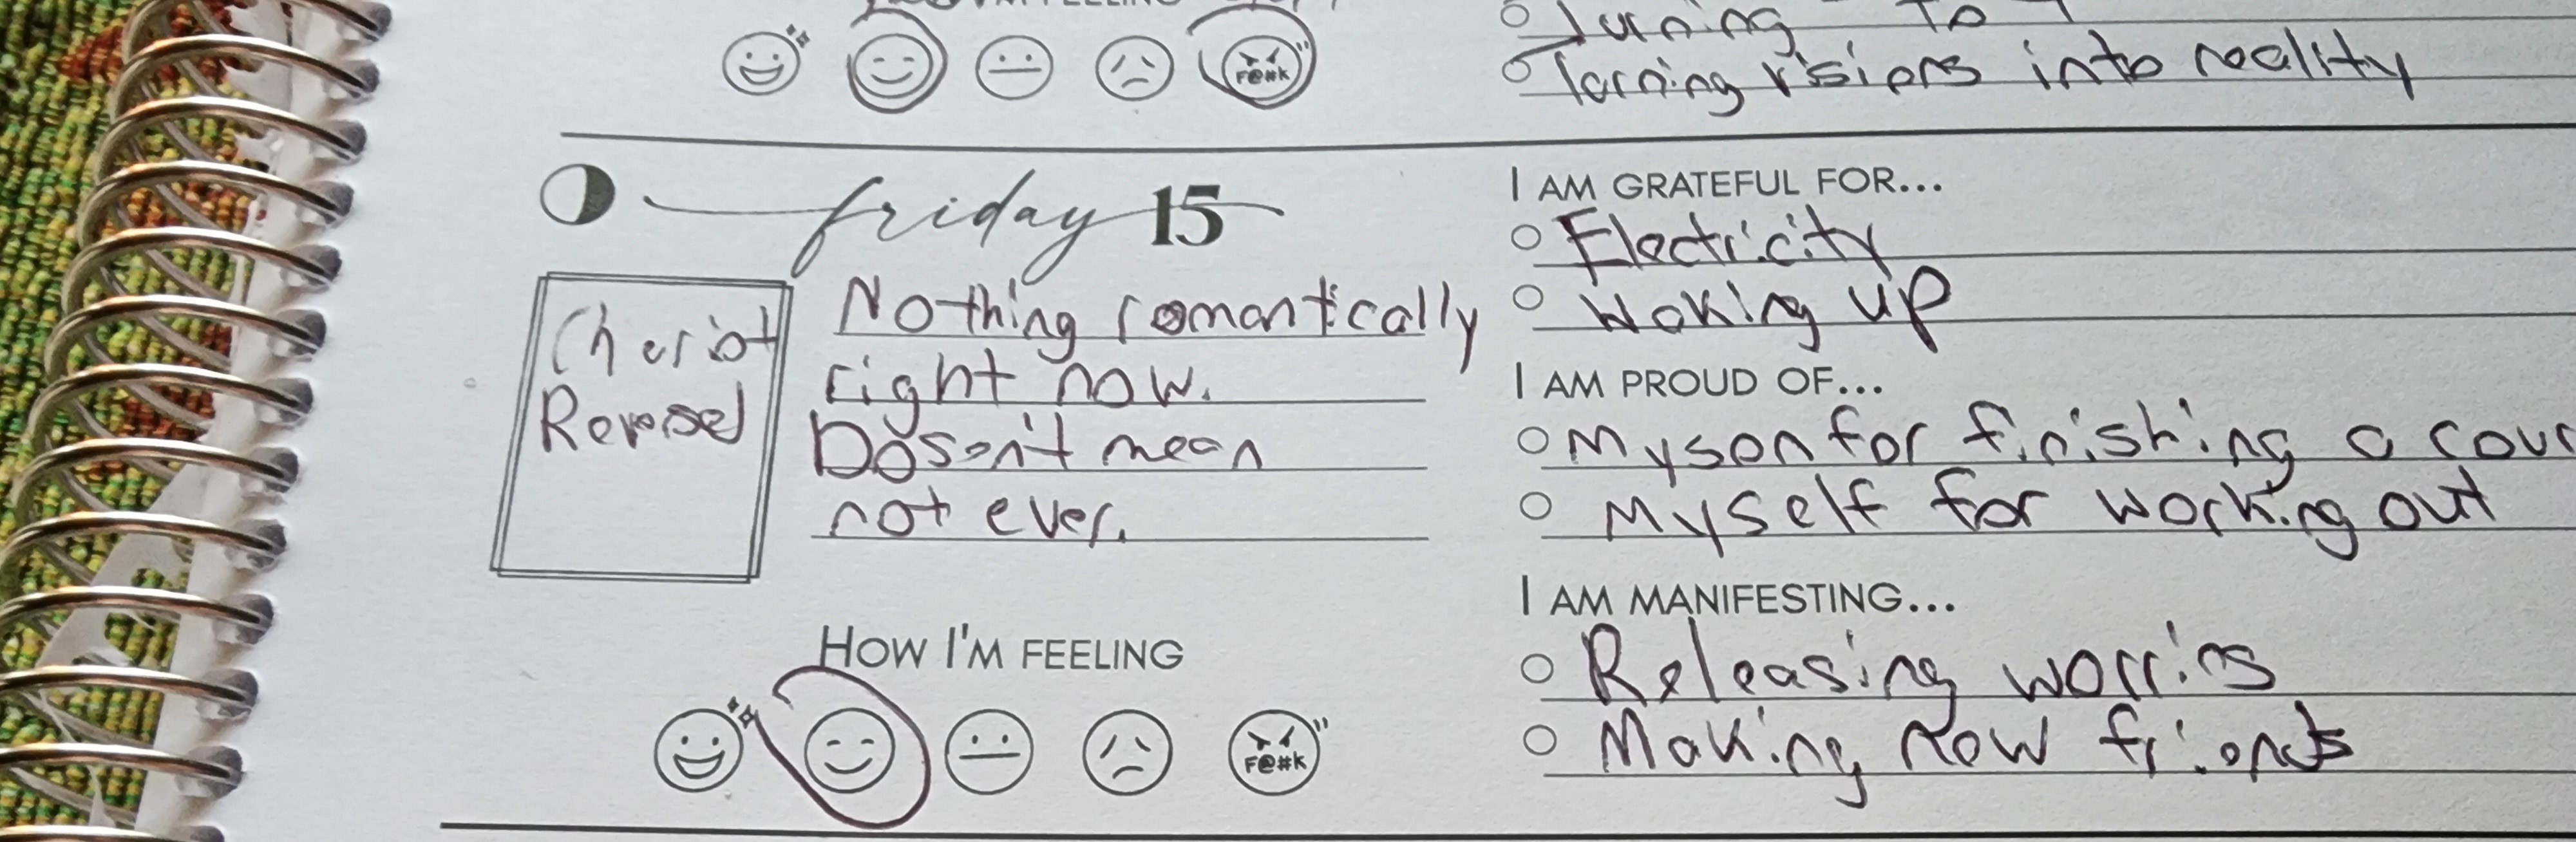 F@#K
Turning
To
Turning visions into reality
friday 15
Chariot
Reversed
Nothing romantically
right now.
Doesn't mean
not ever.
HOW I'M FEELING
F@#K
I AM GRATEFUL FOR...
Electricity
Waking up
I AM PROUD OF...
My son for finishing a cour
Myself for working out
I AM MANIFESTING...
Releasing worries
Making new friends